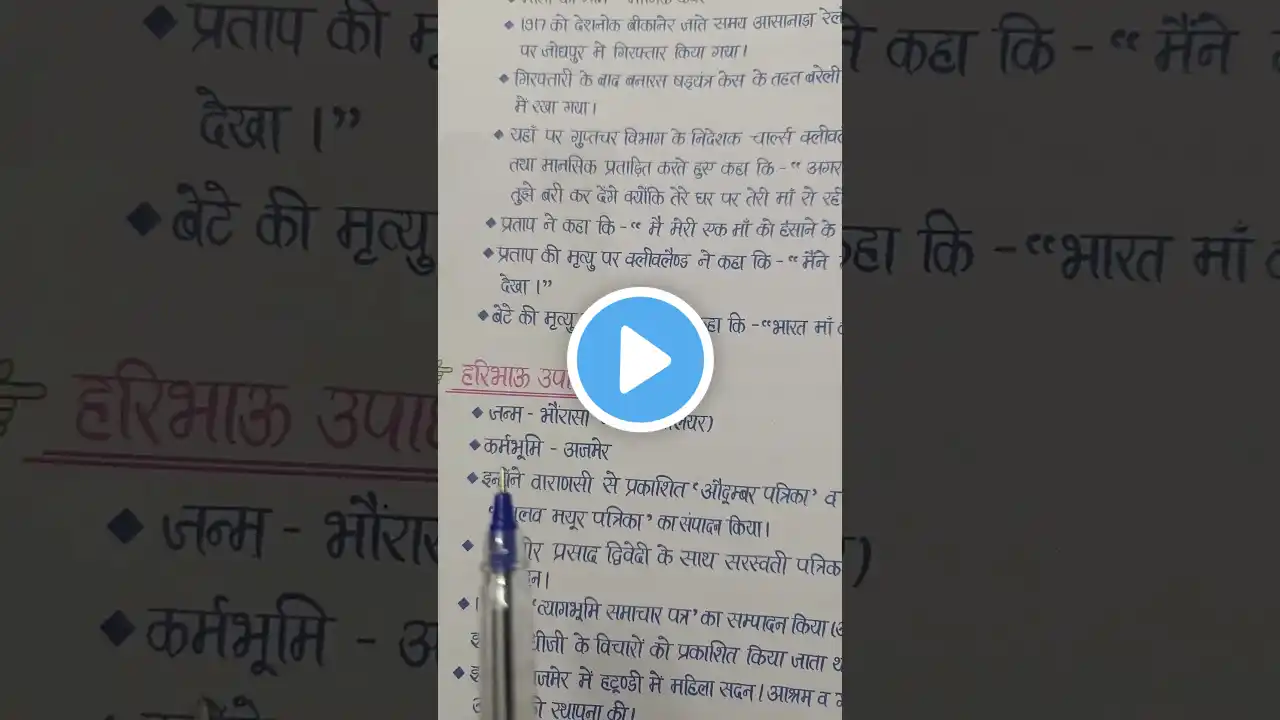 1917 को देशनोक बीकानेर जाते समय आसानाडा रेल
पर जोधपुर में गिरफ्तार किया गया।
गिरफ्तारी के बाद बनारस षड़यंत्र केस के तहत बरेली
में रखा गया।
यहाँ पर गुप्तचर विभाग के निदेशक चार्ल्स क्लीवलै
तथा मानसिक प्रताड़ित करते हुए कहा कि - “ अगर
तुझे बरी कर देंगे क्योंकि तेरे घर पर तेरी माँ रो रही
प्रताप ने कहा कि - “ मै मेरी एक माँ को हंसाने के
प्रताप की मृत्यु पर क्लीवलैण्ड ने कहा कि - “ मैंने
देखा ।”
बेटे की मृत्यु कहा कि - “भारत माँ
हरिभाऊ उपा
जन्म - भौंरासा
कर्मभूमि - अजमेर
इन्होंने वाराणसी से प्रकाशित ‘औदूम्बर पत्रिका’ व
मयूर पत्रिका’ का संपादन किया।
प्रसाद द्विवेदी के साथ सरस्वती पत्रिक
‘त्यागभूमि समाचार पत्र’ का सम्पादन किया
के विचारों को प्रकाशित किया जाता
में हटूण्डी में महिला सदन। आश्रम व
स्थापना की।